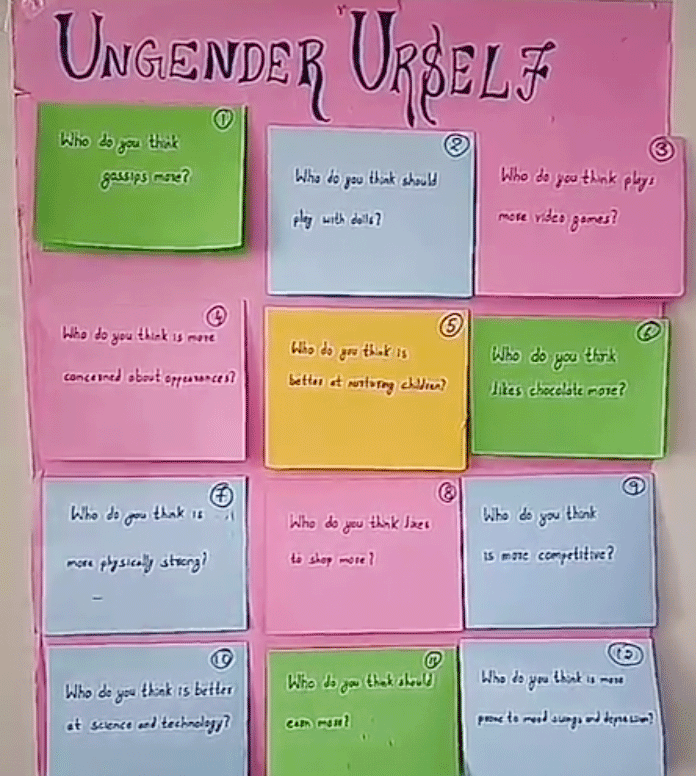 UNGENDER UR$ELF
1
Who do you think
gossips more?
2
Who do you think should
play with dolls?
3
Who do you think plays
more video games?
4
Who do you think is more
concerned about appearances?
5
Who do you think is
better at nurturing children?
6
Who do you think
likes chocolate more?
7
Who do you think is
more physically strong?
8
Who do you think likes
to shop more?
9
Who do you think
is more competitive?
10
Who do you think is better
at science and technology?
11
Who do you think should
earn more?
12
Who do you think is more
prone to mood swings and depression?